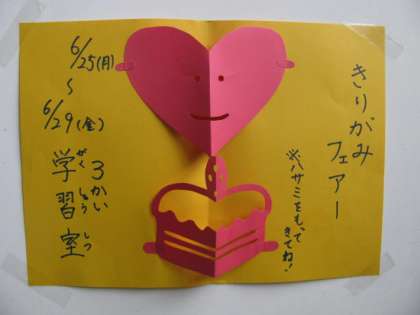 きりがみ
フェアー
※ハサミをもって
きてね！
6/25(月)
～
6/29(金)
3かい
学習室
がくしゅうしつ